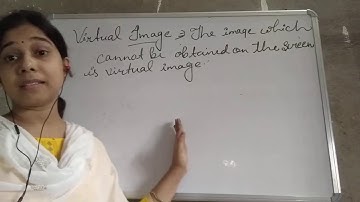 Virtual Image ⇒ The image which
cannot be obtained on the screen
is virtual image.